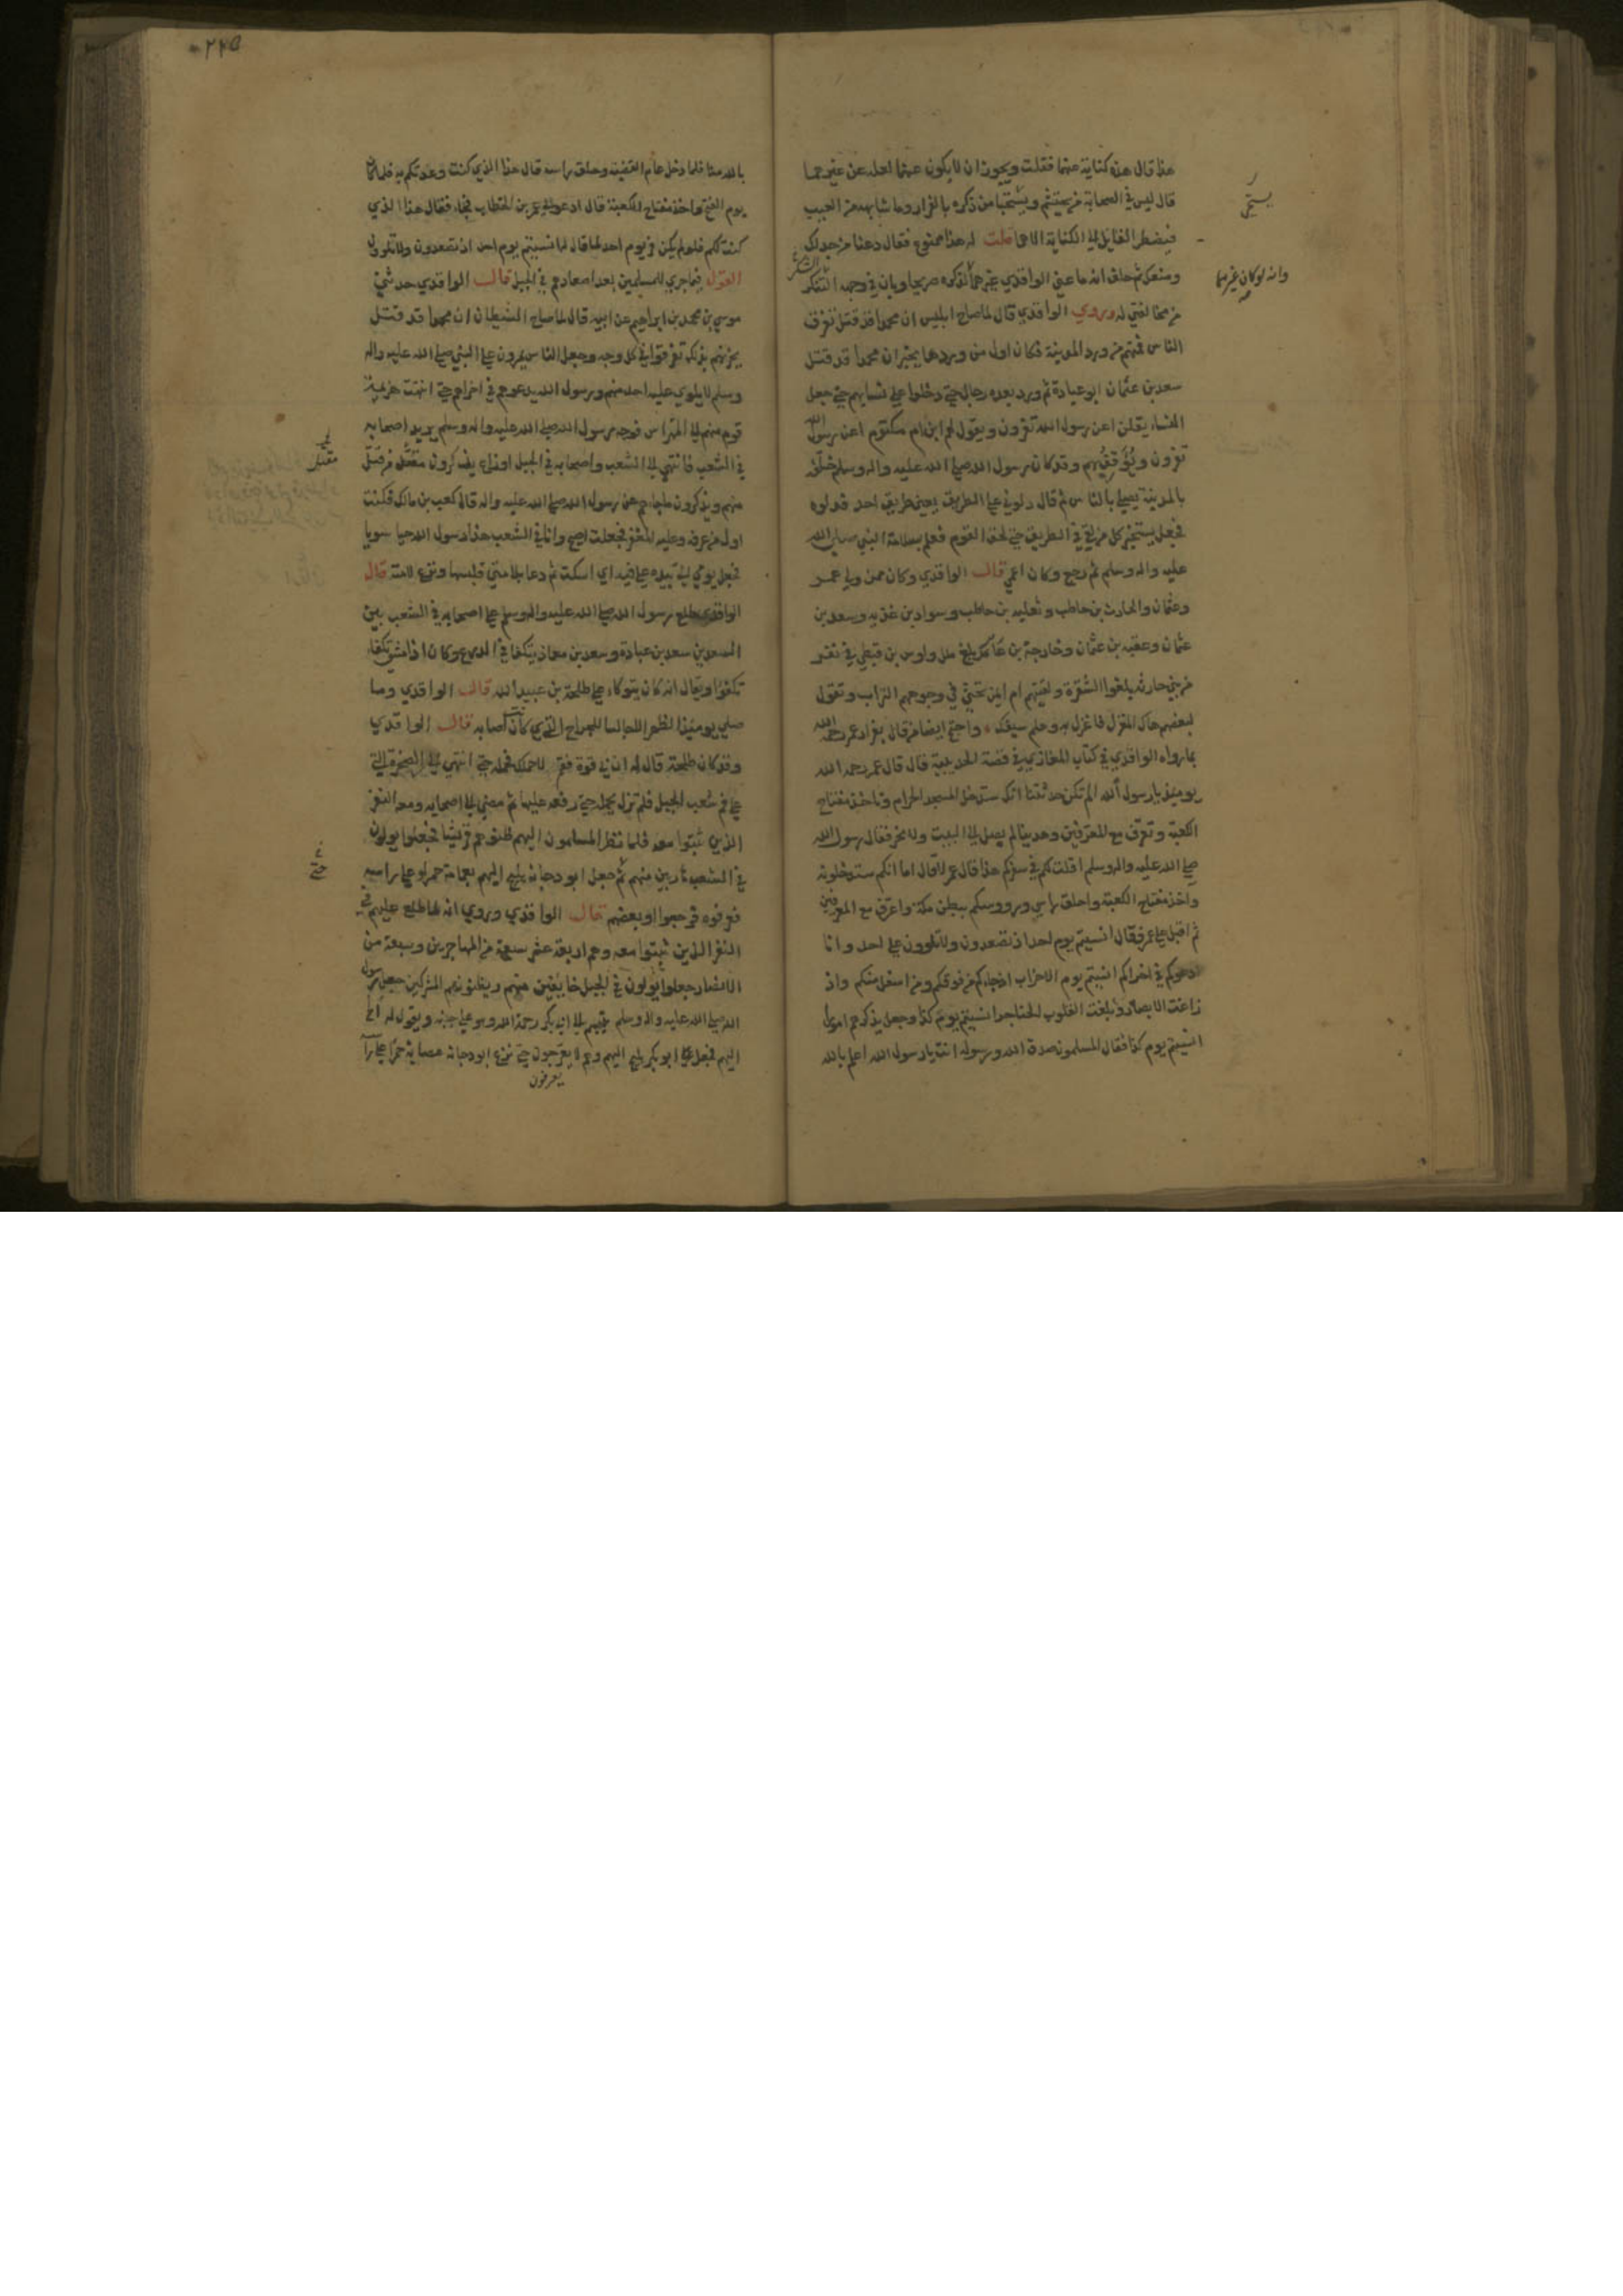 هذا قال هذه كناية عنهما فقلت ويجوز ان لا يكون عنهما لعله عن غيرهما
قال ليس في الصحابة من يحتشم ويستحيا من ذكره بالفرار وما شابهه من العيب
فيضطر القايل الى الكناية الا هما قلت له هذا ممنوع فقال دعنا من جدلك
ومنعك ثم حلف انه ما عنى الواقدي غيرهما لذكره صريحا وبان في وجهه التنكر
من مخالفتي له وروي الواقدي قال لما صاح ابليس ان محمدا قد قتل تفرق
الناس فمنهم من ورد المدينة فكان اول من وردها يخبر ان محمدا قد قتل
سعد بن عثمان ابو عبادة ثم ورد بعده رجال حتى دخلوا على نسايهم حتى جعل
النساء يقلن اعن رسول الله تفرون ويقول لهم ابن ام مكتوم اعن رسول الله
تفرون ويؤنبهم وقد كان رسول الله صلى الله عليه واله وسلم خلفه
بالمدينة يصلي بالناس ثم قال دلوني على الطريق يعني طريق احد فدلوه
فجعل يستخبر كل من لقي في الطريق حتى لحق القوم فعلم بسلامة النبي صلى الله
عليه واله وسلم ثم رجع وكان اعمى قال الواقدي وكان ممن ولى عمر
وعثمان والحارث بن حاطب وثعلبه بن حاطب وسواد بن غزيه وسعد بن
عثمان وعقبه بن عثمان وخارجة بن عامر بلغ ملل واوس بن قيظي في نفر
من بني حارثه بلغوا الشقرة ولقيتهم ام ايمن تحثي في وجوههم التراب وتقول
لبعضهم هاك المغزل فاغزل به وهلم سيفك واحتج ايضا من قال بفرار عمر رحمه الله
بما رواه الواقدي في كتاب المغازي في قصة الحديبية قال قال عمر رحمه الله
يومئذ يا رسول الله الم تكن حدثتنا انك ستدخل المسجد الحرام وتاخذ مفتاح
الكعبة وتعرف مع المعرفين وهدينا لم يصل الى البيت ولا نحر فقال رسول الله
صلى الله عليه واله وسلم اقلت لكم في سفركم هذا قال عمر لا قال اما انكم ستدخلونه
واخذ مفتاح الكعبة واحلق راسي ورووسكم ببطن مكة واعرف مع المعرفين
ثم اقبل على عمر فقال انسيتم يوم احد اذ تصعدون ولا تلوون على احد وانا
ادعوكم في اخراكم انسيتم يوم الاحزاب اذ جاءكم من فوقكم ومن اسفل منكم واذ
زاغت الابصار وبلغت القلوب الحناجر انسيتم يوم كذا وجعل يذكرهم امورا
انسيتم يوم كذا فقال المسلمون صدق الله ورسوله انت يا رسول الله اعلم بالله
يستحي
وانه لو كان غيرهما
٢٢٥
بالله منا فلما دخل عام القضية وحلق راسه قال هذا الذي كنت وعدتكم به فلما كان
يوم الفتح واخذ مفتاح الكعبة قال ادعوا الي عمر بن الخطاب فجاء فقال هذا الذي
كنت قلت لكم فلو لم يكن فر يوم احد لما قال له انسيتم يوم احد اذ تصعدون ولا تلوون
القول فيما جرى للمسلمين بعد اصعادهم في الجبل قال الواقدي حدثني
موسى بن محمد بن ابراهيم عن ابيه قال لما صاح الشيطان ان محمدا قد قتل
يحزنهم بذلك تفرقوا في كل وجه وجعل الناس يمرون على النبي صلى الله عليه واله
وسلم لا يلوي عليه احد منهم ورسول الله يدعوهم في اخراهم حتى انتهت هزيمة
قوم منهم الى المهراس فوجه رسول الله صلى الله عليه واله وسلم يريد اصحابه
في الشعب فانتهى الى الشعب واصحابه في الجبل اوزاع يذكرون مقتل من قتل
منهم ويذكرون ما جاءهم عن رسول الله صلى الله عليه واله قال كعب بن مالك فكنت
اول من عرفه وعليه المغفر فجعلت اصيح وانا في الشعب هذا رسول الله حيا سويا
فجعل يومي الي بيده على فيه اي اسكت ثم دعا بلامتي فلبسها ونزع لامته قال
الواقدي طلع رسول الله صلى الله عليه واله وسلم على اصحابه في الشعب بين
السعدين سعد بن عبادة وسعد بن معاذ يتكفا في الدرع وكان اذا مشى تكفا
تكفؤا ويقال انه كان يتوكاء على طلحة بن عبيد الله قال الواقدي وما
صلى يومئذ الظهر الا جالسا للجراح التي كانت اصابه قال الواقدي
وقد كان طلحة قال له ان لي قوة فقم لاحملك فحمله حتى انتهى الى الصخرة التي
على فم شعب الجبل فلم تزل يحمله حتى رفعه عليها ثم مضى الى اصحابه ومعه النفر
الذين ثبتوا معه فلما نظر المسلمون اليهم ظنوهم قريشا فجعلوا يولون
في الشعب هاربين منهم ثم جعل ابو دجانه يليح اليهم بعمامة حمراء على راسه
فعرفوه فرجعوا او بعضهم قال الواقدي وروي انه لما طلع عليهم في
النفر الذين ثبتوا معه وهم اربعة عشر سبعة من المهاجرين وسبعة من
الانصار جعلوا يولون في الجبل خايفين منهم ويظنونهم المشركين جعل رسول
الله صلى الله عليه واله وسلم يتبسم الى ابي بكر رحمة الله وهو على جنبه ويقول له الح
اليهم فجعل ابو بكر يليح اليهم وهم لا يعرجون حتى نزع ابو دجانه عصابة حمراء على راسه
يعرفون
مقتل
حتى